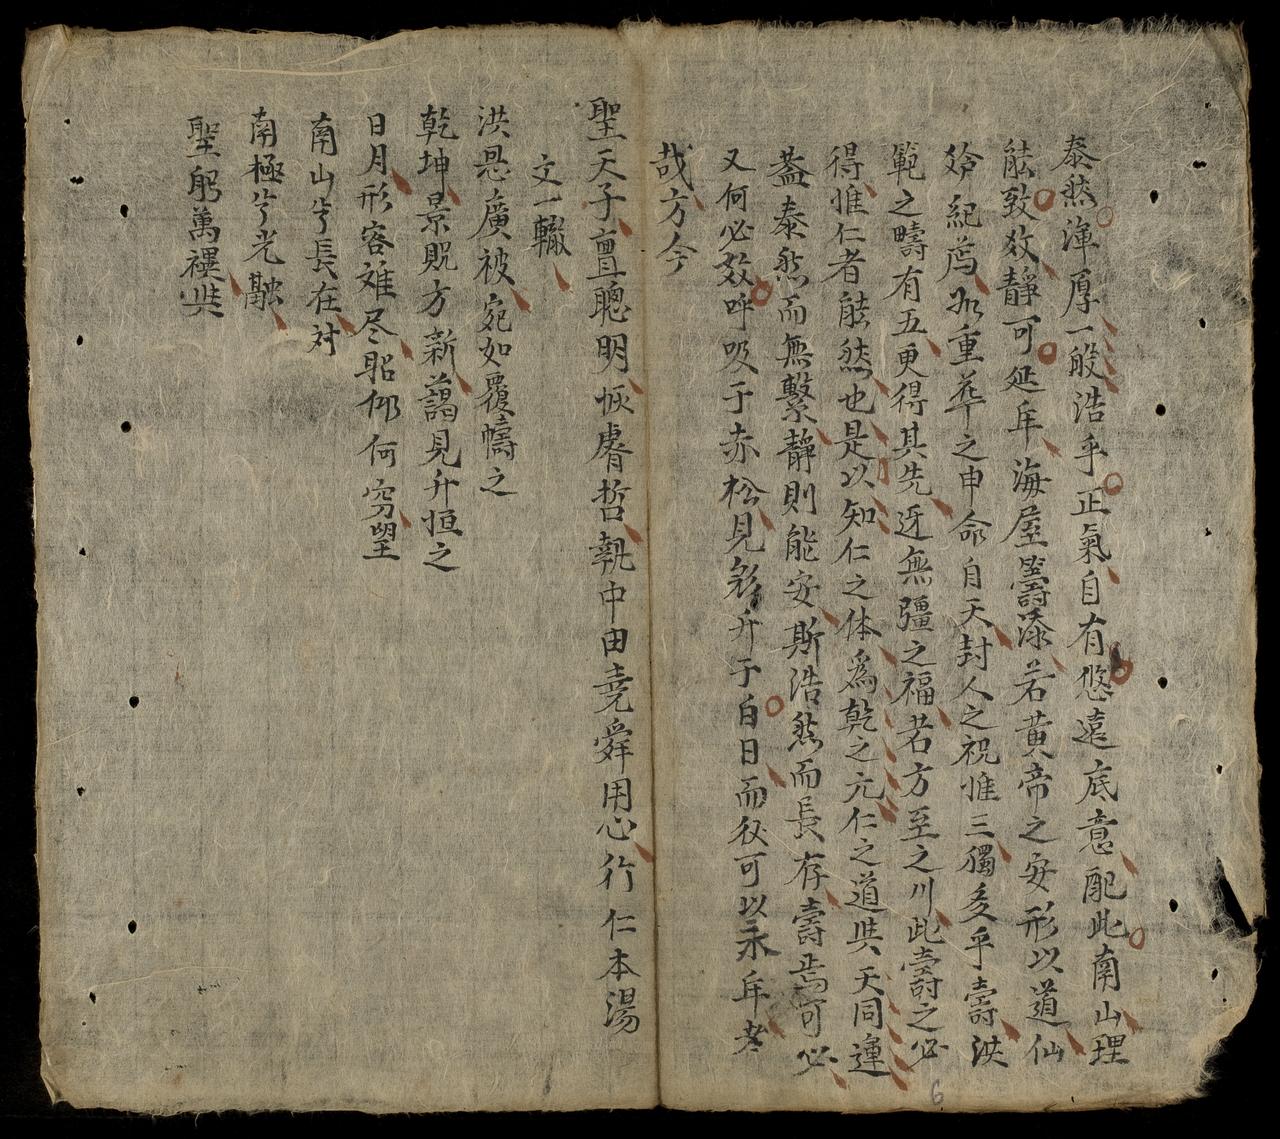 泰然渾厚一般浩乎正氣自有悠遠底意配此南山理
能致效靜可延年海屋籌添若黃帝之安形以道仙
紀焉如重華之申命自天封人之祝惟三獨多乎壽洪
範之疇有五更得其先迓無疆之福若方至之川此壽之必
得惟仁者能然也是以知仁之体爲乾之元仁之道與天同運
蓋泰然而無繫靜則能安斯浩然而長存壽焉可必
又何必效呼吸于赤松見彩升于白日而後可以永年者
哉方今
聖天子亶聰明恢睿哲執中由堯舜用心行仁本湯
文一轍
洪恩廣被宛如覆幬之
乾坤景貺方新藹見升恒之
日月形容难尽昭仰何穷望
南山兮長在対
南極兮光融
聖躬萬禩與
6